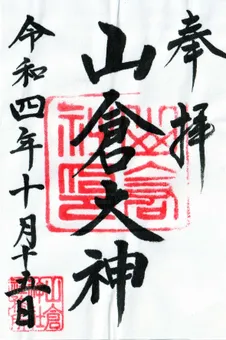 奉拝
山倉大神
令和四年十月十五日